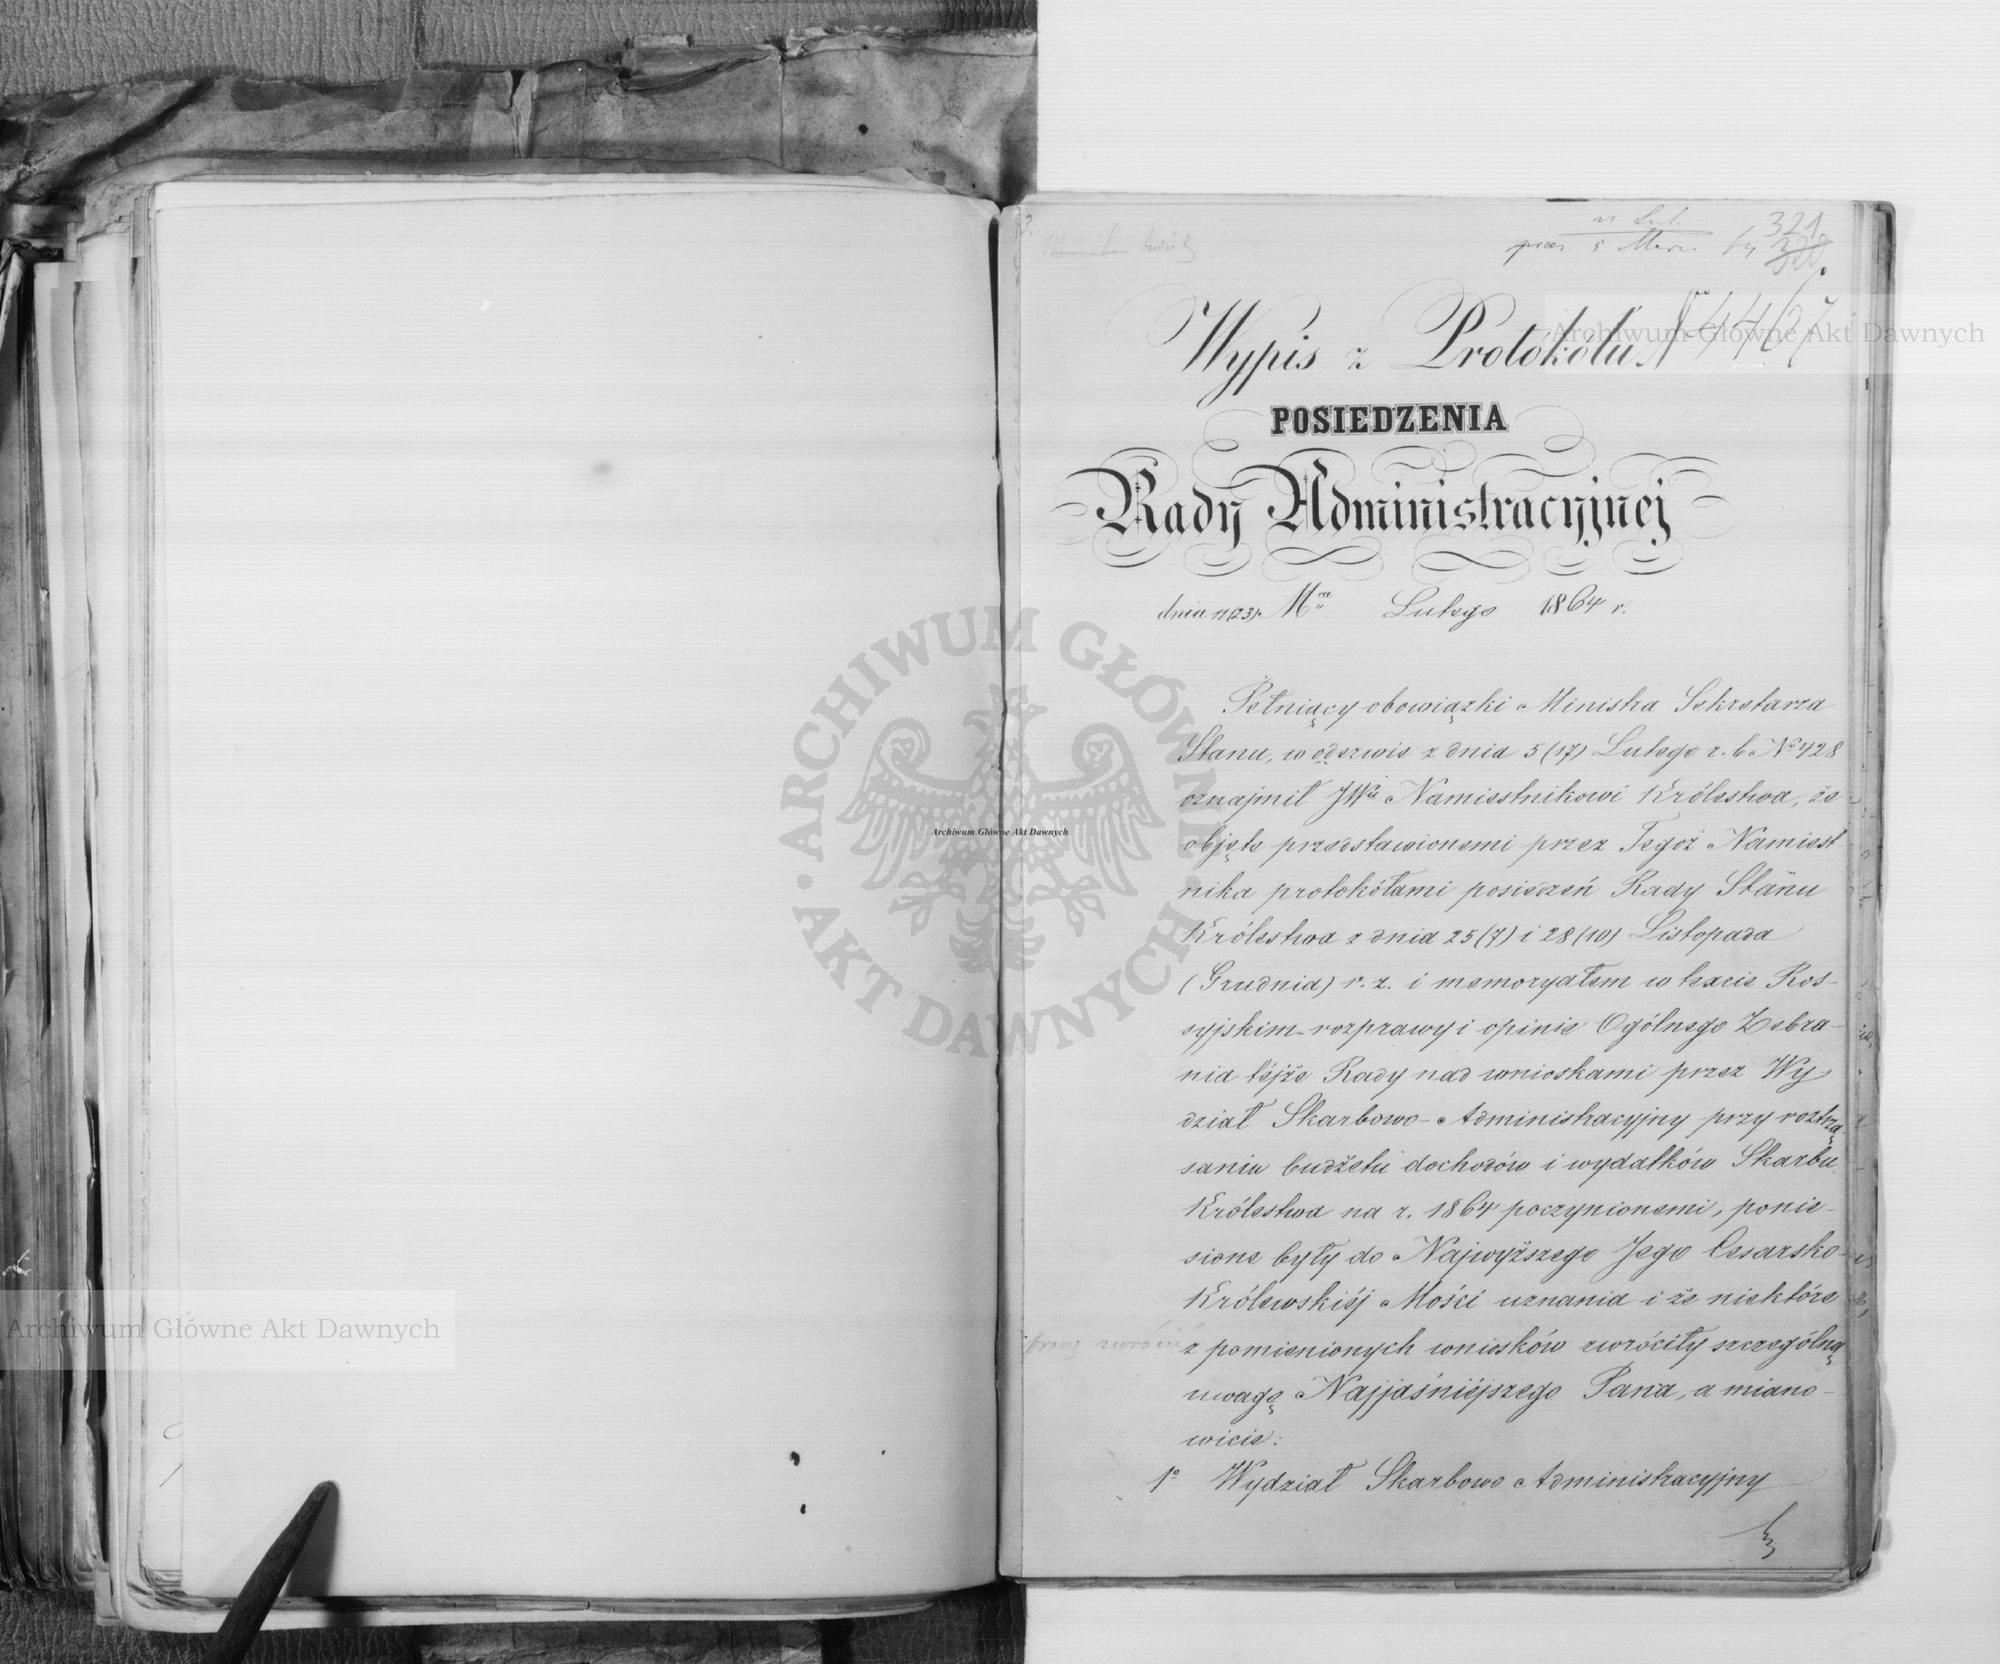 321
320
praes. 5 Marc. 64
Wypis z Protokółu № 4467
POSIEDZENIA
Rady Administracyjnej
dnia 11 (23) Lutego 1864 r.
Pełniący obowiązki Ministra Sekretarza
Stanu, w odezwie z dnia 5 (17) Lutego r. b. № 428
oznajmił JWu Namiestnikowi Królestwa, że
objęte przedstawionemi przez Tegoż Namiest
nika protokółami posiedzeń Rady Stanu
Królestwa z dnia 25 (7) i 28 (10) Listopada
(Grudnia) r. z. i memoryałem w texcie Ros-
syjskim rozprawy i opinie Ogólnego Zebra-
nia téjże Rady nad wnioskami przez Wy
dział Skarbowo-Administracyjny przy roztrzą-
saniu budżetu dochodów i wydatków Skarbu
Królestwa na r. 1864 poczynionemi, ponie-
sione były do Najwyższego Jego Cesarsko-
Królewskiéj Mości uznania i że niektóre
z pomienionych wniosków zwróciły szczególną
uwagę Najjaśniéjszego Pana, a miano-
wicie:
1° Wydział Skarbowo Administracyjny
Archiwum Główne Akt Dawnych
Archiwum Główne Akt Dawnych
Archiwum Główne Akt Dawnych
ARCHIWUM GŁÓWNE AKT DAWNYCH